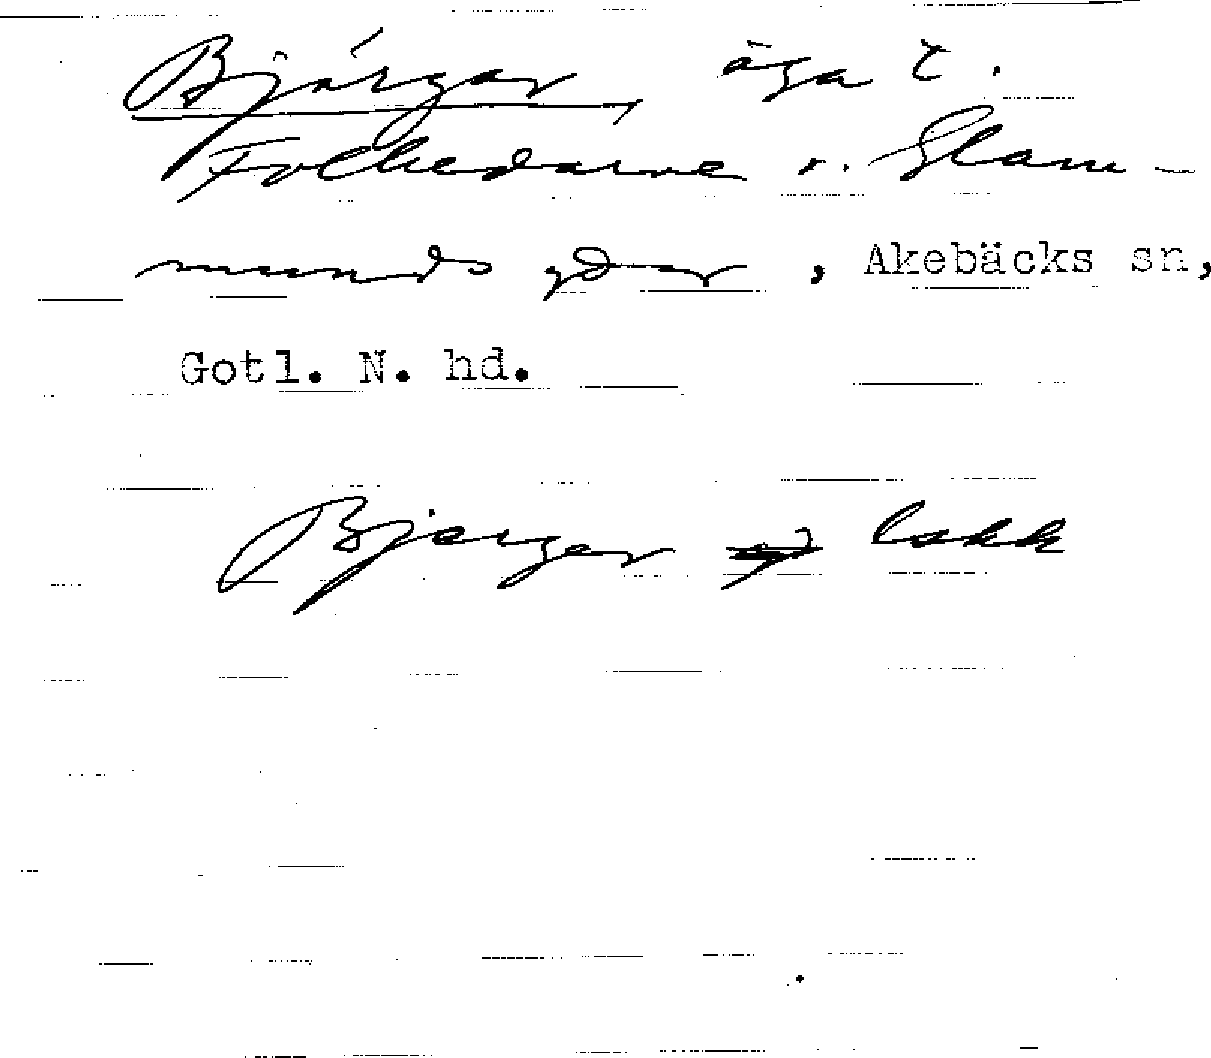 Bjärgar, äga t.
Folkedarve o. Glam-
munds gdar, Akebäcks sn,
Gotl. N. hd.
Bjerger lakk